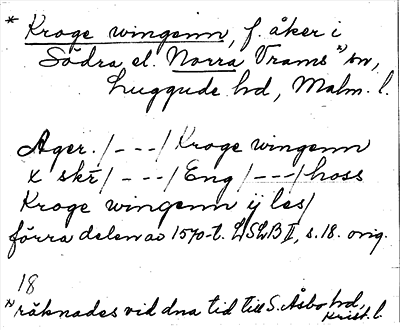 * Kroge wingenn, f. åker i
Södra el. Norra Vrams ¹⁾ sn,
Luggude hd, Malm. l.
Ager. /---/ Kroge wingenn
x skr̄ /---/ Eng /---/ hoss
Kroge wingenn ÿ les/
förra delen av 1570-t. LSLB II, s. 18. orig.
18
¹⁾ räknades vid dna tid till S. Åsbo hd,
Krist. l.